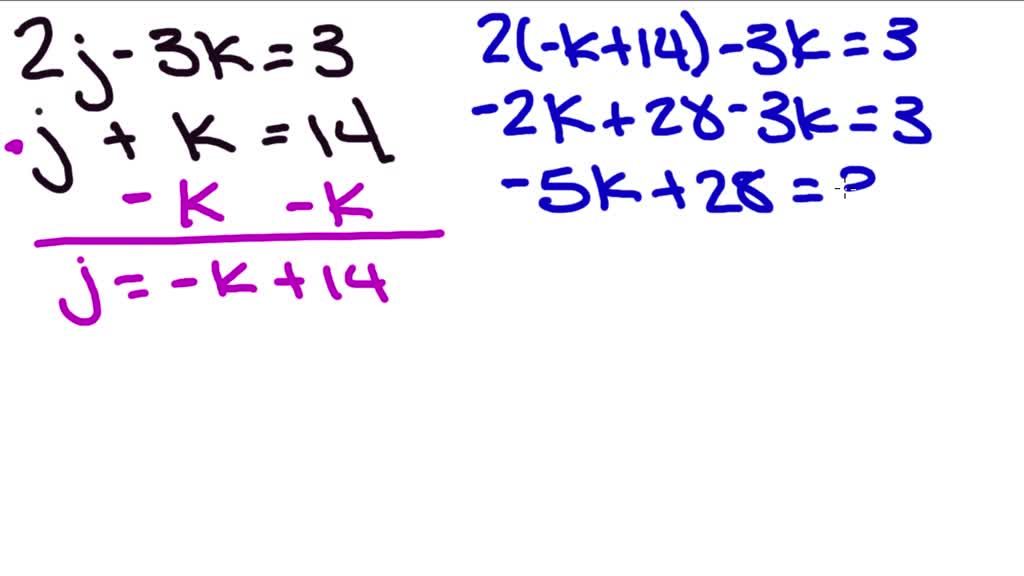 2j - 3k = 3
j + k = 14
- k - k
j = - k + 14
2(-k+14) - 3k = 3
-2k + 28 - 3k = 3
-5k + 28 =